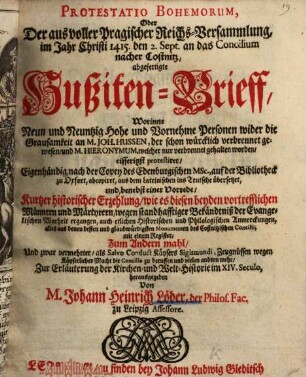 PROTESTATIO BOHEMORUM,
Oder
Der aus voller Pragischer Reichs-Versammlung,
im Jahr Christi 1415. den 2. Sept. an das Concilium
nacher Costnitz,
abgefertigte
Hußiten-Brieff,
Worinne
Neun und Neuntzig Hohe und Vornehme Personen wider die
Grausamkeit an M. JOH. HUSSEN, der schon würcklich verbrennet ge-
wesen/und M. HIERONYMUM, welcher nur verbrennet gehalten worden/
eifferigst protestiret/
Eigenhändig nach der Copey des Edenburgischen MSc. auf der Bibliotheck
zu Erfurt, abcopiret, aus dem lateinischen ins Teutsche übersetzet,
und, benebst einer Vorrede,
Kurtzer historischer Erzehlung/ wie es diesen beyden vortrefflichen
Männern und Märtyrern, wegen standhafftiger Bekändniß der Evange-
lischen Warheit ergangen, auch etlichen Historischen und Philologischen Anmerckungen,
alles aus denen besten und glaubwürdigsten Monumenten des Costnitzischen Concilii;
mit einem Register,
Zum Andern mahl/
Und zwar vermehrter/ als Salvo Conduct Käysers Sigismundi, Zeugnüssen wegen
Käyserlicher Macht die Concilia zu beruffen und vielen andern mehr/
Zur Erläuterung der Kirchen-und Welt-Historie im XIV. Seculo,
herausgegeben
Von
M. Johann Heinrich Löder, der Philos. Fac.
zu Leipzig Assessore.
zu finden bey Johann Ludwig Gleditsch